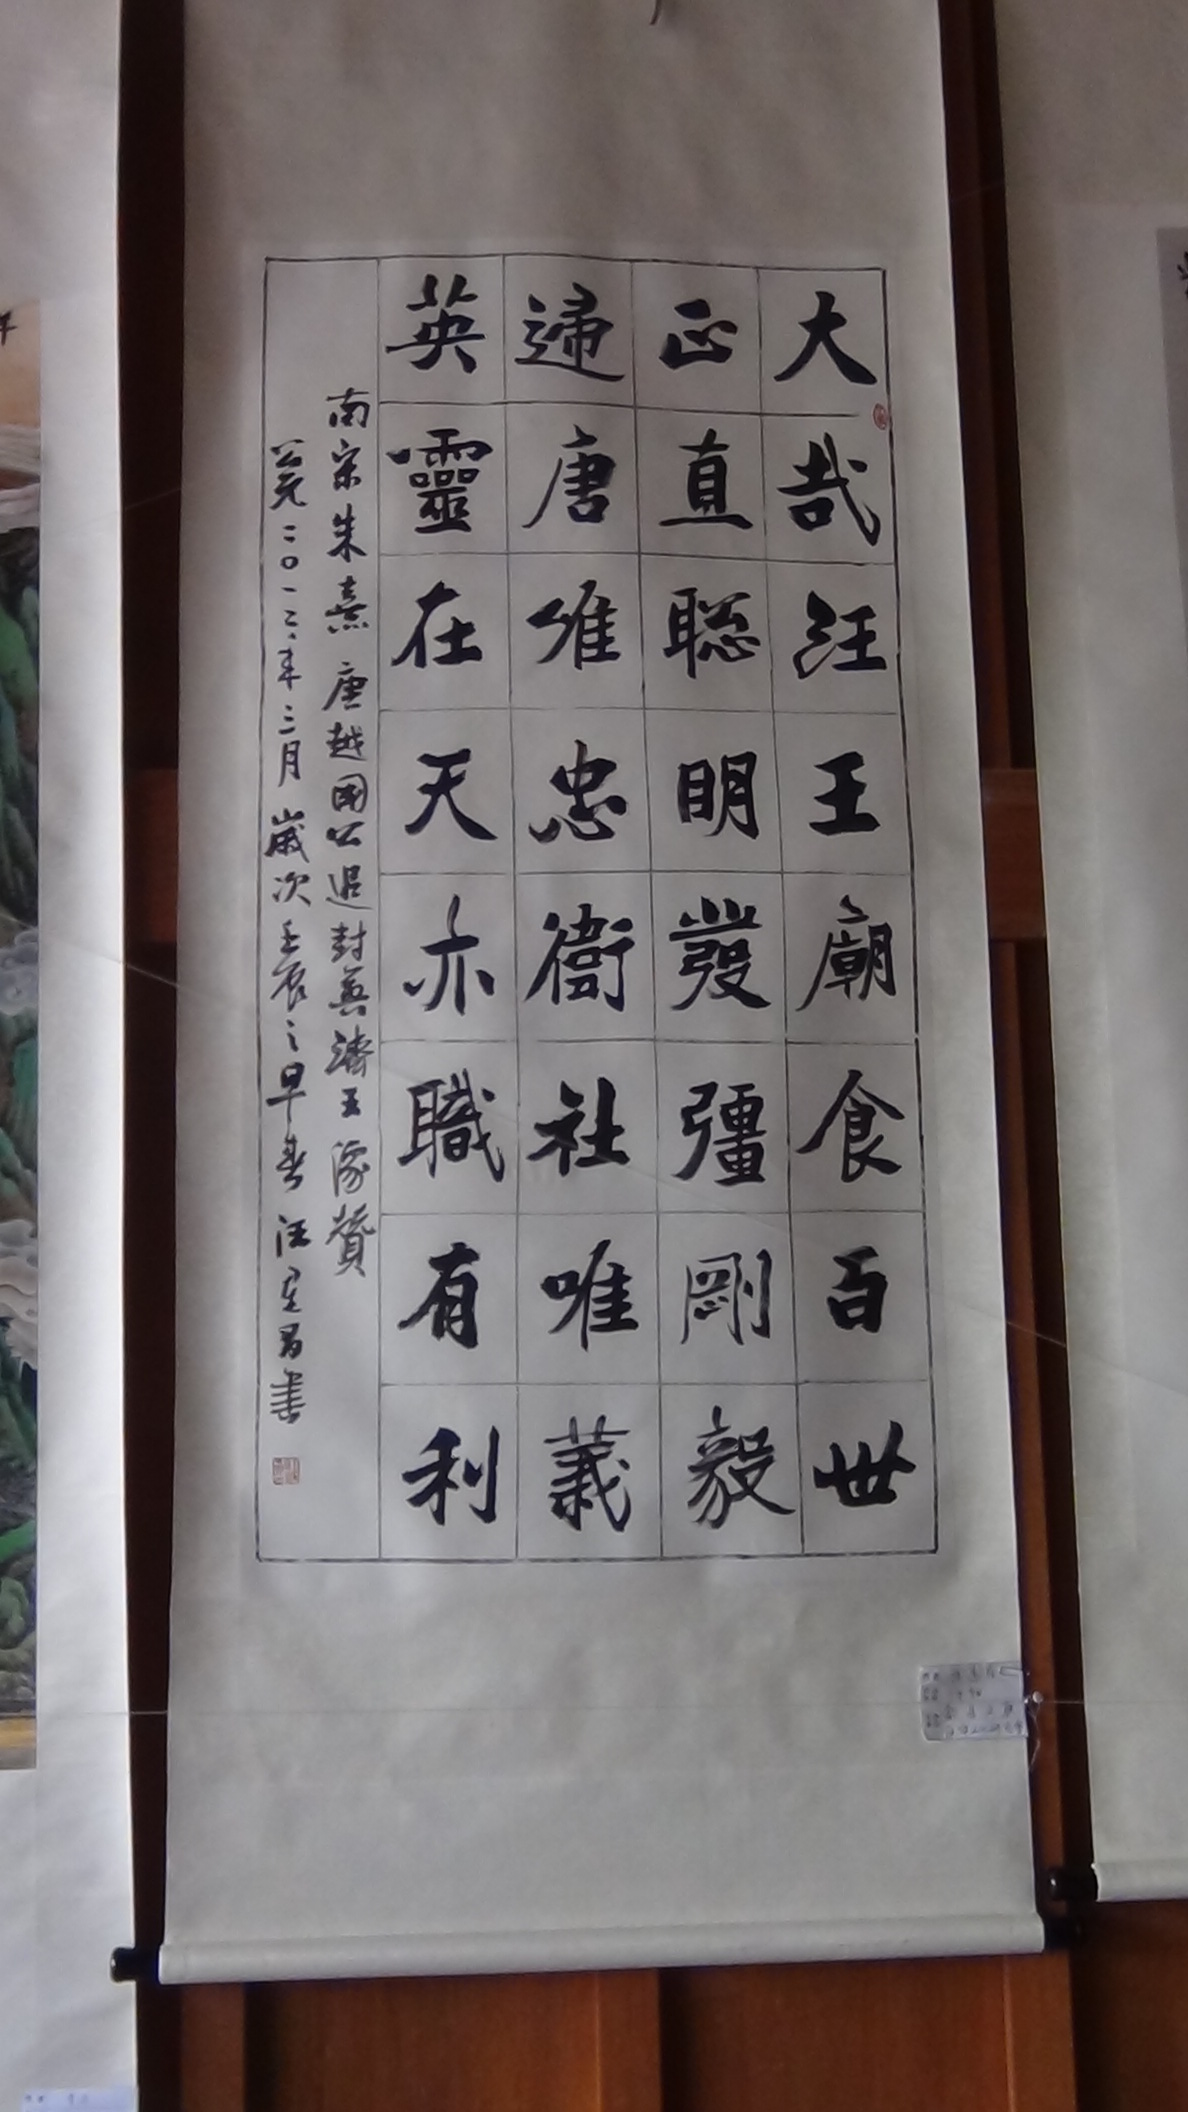 大哉汪王廟食百世
正直聪明發彊剛毅
歸唐唯忠衛社唯義
英靈在天亦職有利
南宋朱熹 唐越国公追封英濟王像贊
公元二〇一二年三月歲次壬辰之早春 汪
書